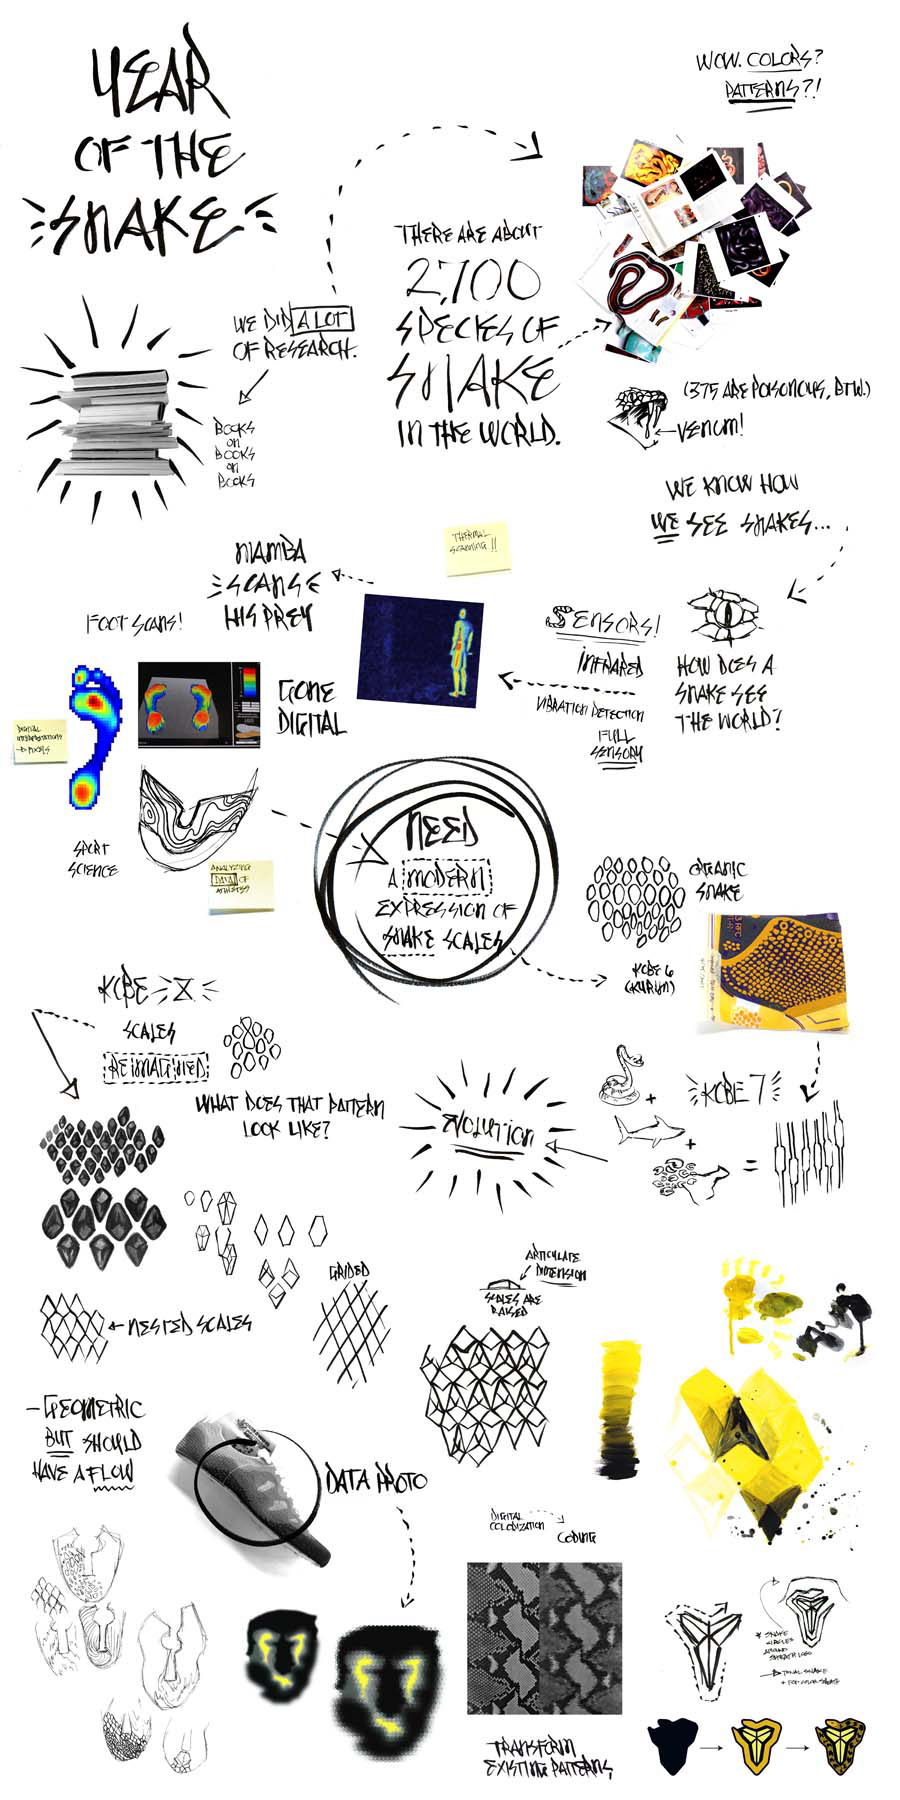 YEAR
OF THE
SNAKE
WOW. COLORS?
PATTERNS?!
THERE ARE ABOUT
2,700
SPECIES OF
SNAKE
IN THE WORLD.
WE DID A LOT
OF RESEARCH.
BOOKS
ON
BOOKS
ON
BOOKS
(375 ARE POISONOUS, BTW.)
VENOM!
WE KNOW HOW
WE SEE SNAKES...
HOW DOES A
SNAKE SEE
THE WORLD?
SENSORS!
INFRARED
VIBRATION DETECTION
FULL
SENSORY
THERMAL
SCANNING!!
MAMBA
SCANS
HIS PREY
FOOT SCANS!
GONE
DIGITAL
DIGITAL
INTERPRETATIONS
PIXELS
SPORT
SCIENCE
ANALYZING
DATA OF
ATHLETES
NEED
A MODERN
EXPRESSION OF
SNAKE SCALES
ORGANIC
SNAKE
KOBE 6
KOBE X
SCALES
REIMAGINED
WHAT DOES THAT PATTERN
LOOK LIKE?
EVOLUTION
+
+
KOBE 7
=
NESTED SCALES
GRIDED
ARTICULATE
DIMENSION
SCALES ARE
RAISED
- GEOMETRIC
BUT SHOULD
HAVE A FLOW
DATA PHOTO
DIGITAL
COLORIZATION
CODING
TRANSFORM
EXISTING PATTERNS
* SNAKE
CIRCLES
AROUND
SHEATH LOGO
TONAL SNAKE
+ POP COLOR SHEATH